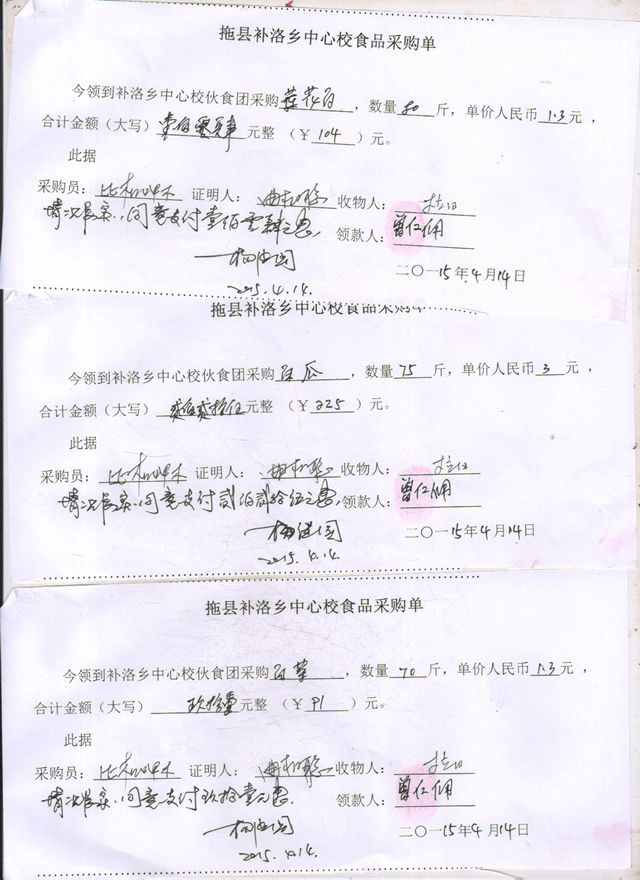 拖县补洛乡中心校食品采购单
今领到补洛乡中心校伙食团采购莲花白，数量80斤，单价人民币1.3元，
合计金额（大写）壹佰零肆元整（￥104）元。
此据
采购员： 证明人： 收物人：
情况属实，同意支付壹佰零肆元整 领款人：曾仁佣
二〇一15年4月14日
2015.4.14.
拖县补洛乡中心校食品采购单
今领到补洛乡中心校伙食团采购白瓜，数量75斤，单价人民币3元，
合计金额（大写）贰佰贰拾伍元整（￥225）元。
此据
采购员： 证明人： 收物人：
情况属实，同意支付贰佰贰拾伍元 领款人：曾仁佣
二〇一15年4月14日
2015.4.14.
拖县补洛乡中心校食品采购单
今领到补洛乡中心校伙食团采购白菜，数量70斤，单价人民币1.3元，
合计金额（大写）玖拾壹元整（￥91）元。
此据
采购员： 证明人： 收物人：
情况属实，同意支付玖拾壹元 领款人：曾仁佣
二〇一15年4月14日
2015.4.14.